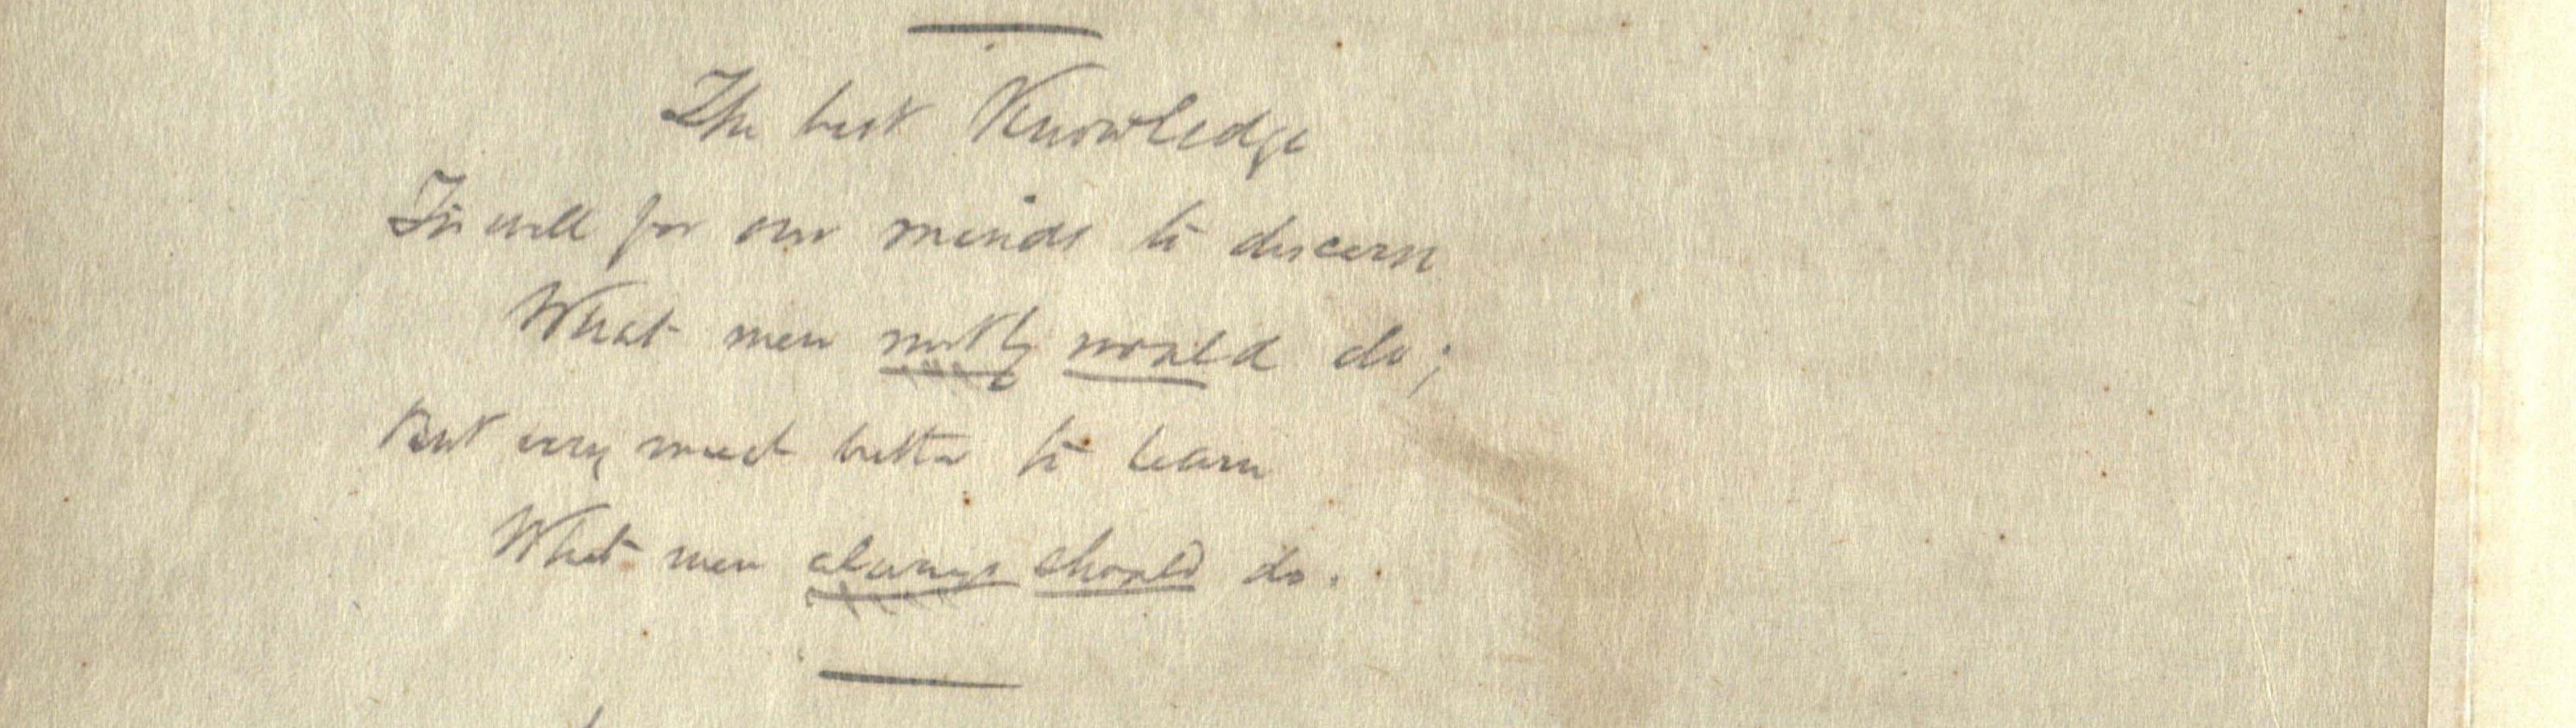 The best Knowledge
Tis well for our minds to discern
What men mostly would do;
But very much better to learn
What men always should do.